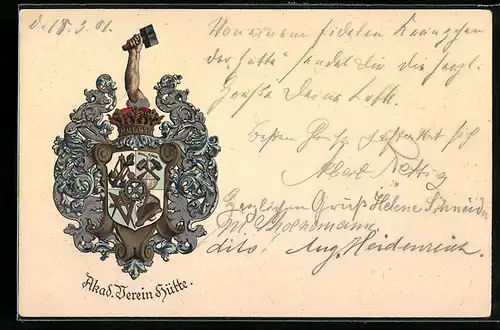 d. 18.3.01.
Von einem fidelen Kränzchen
der „Hütte“ sendet Dir die herzl.
Grüße Deine
besten Gruß gestattet sich
Albert Rettig
Herzlichen Gruß Helene Schneider
M. Thoenemann
dito. Aug. Heidenreich
Akad. Verein Hütte.